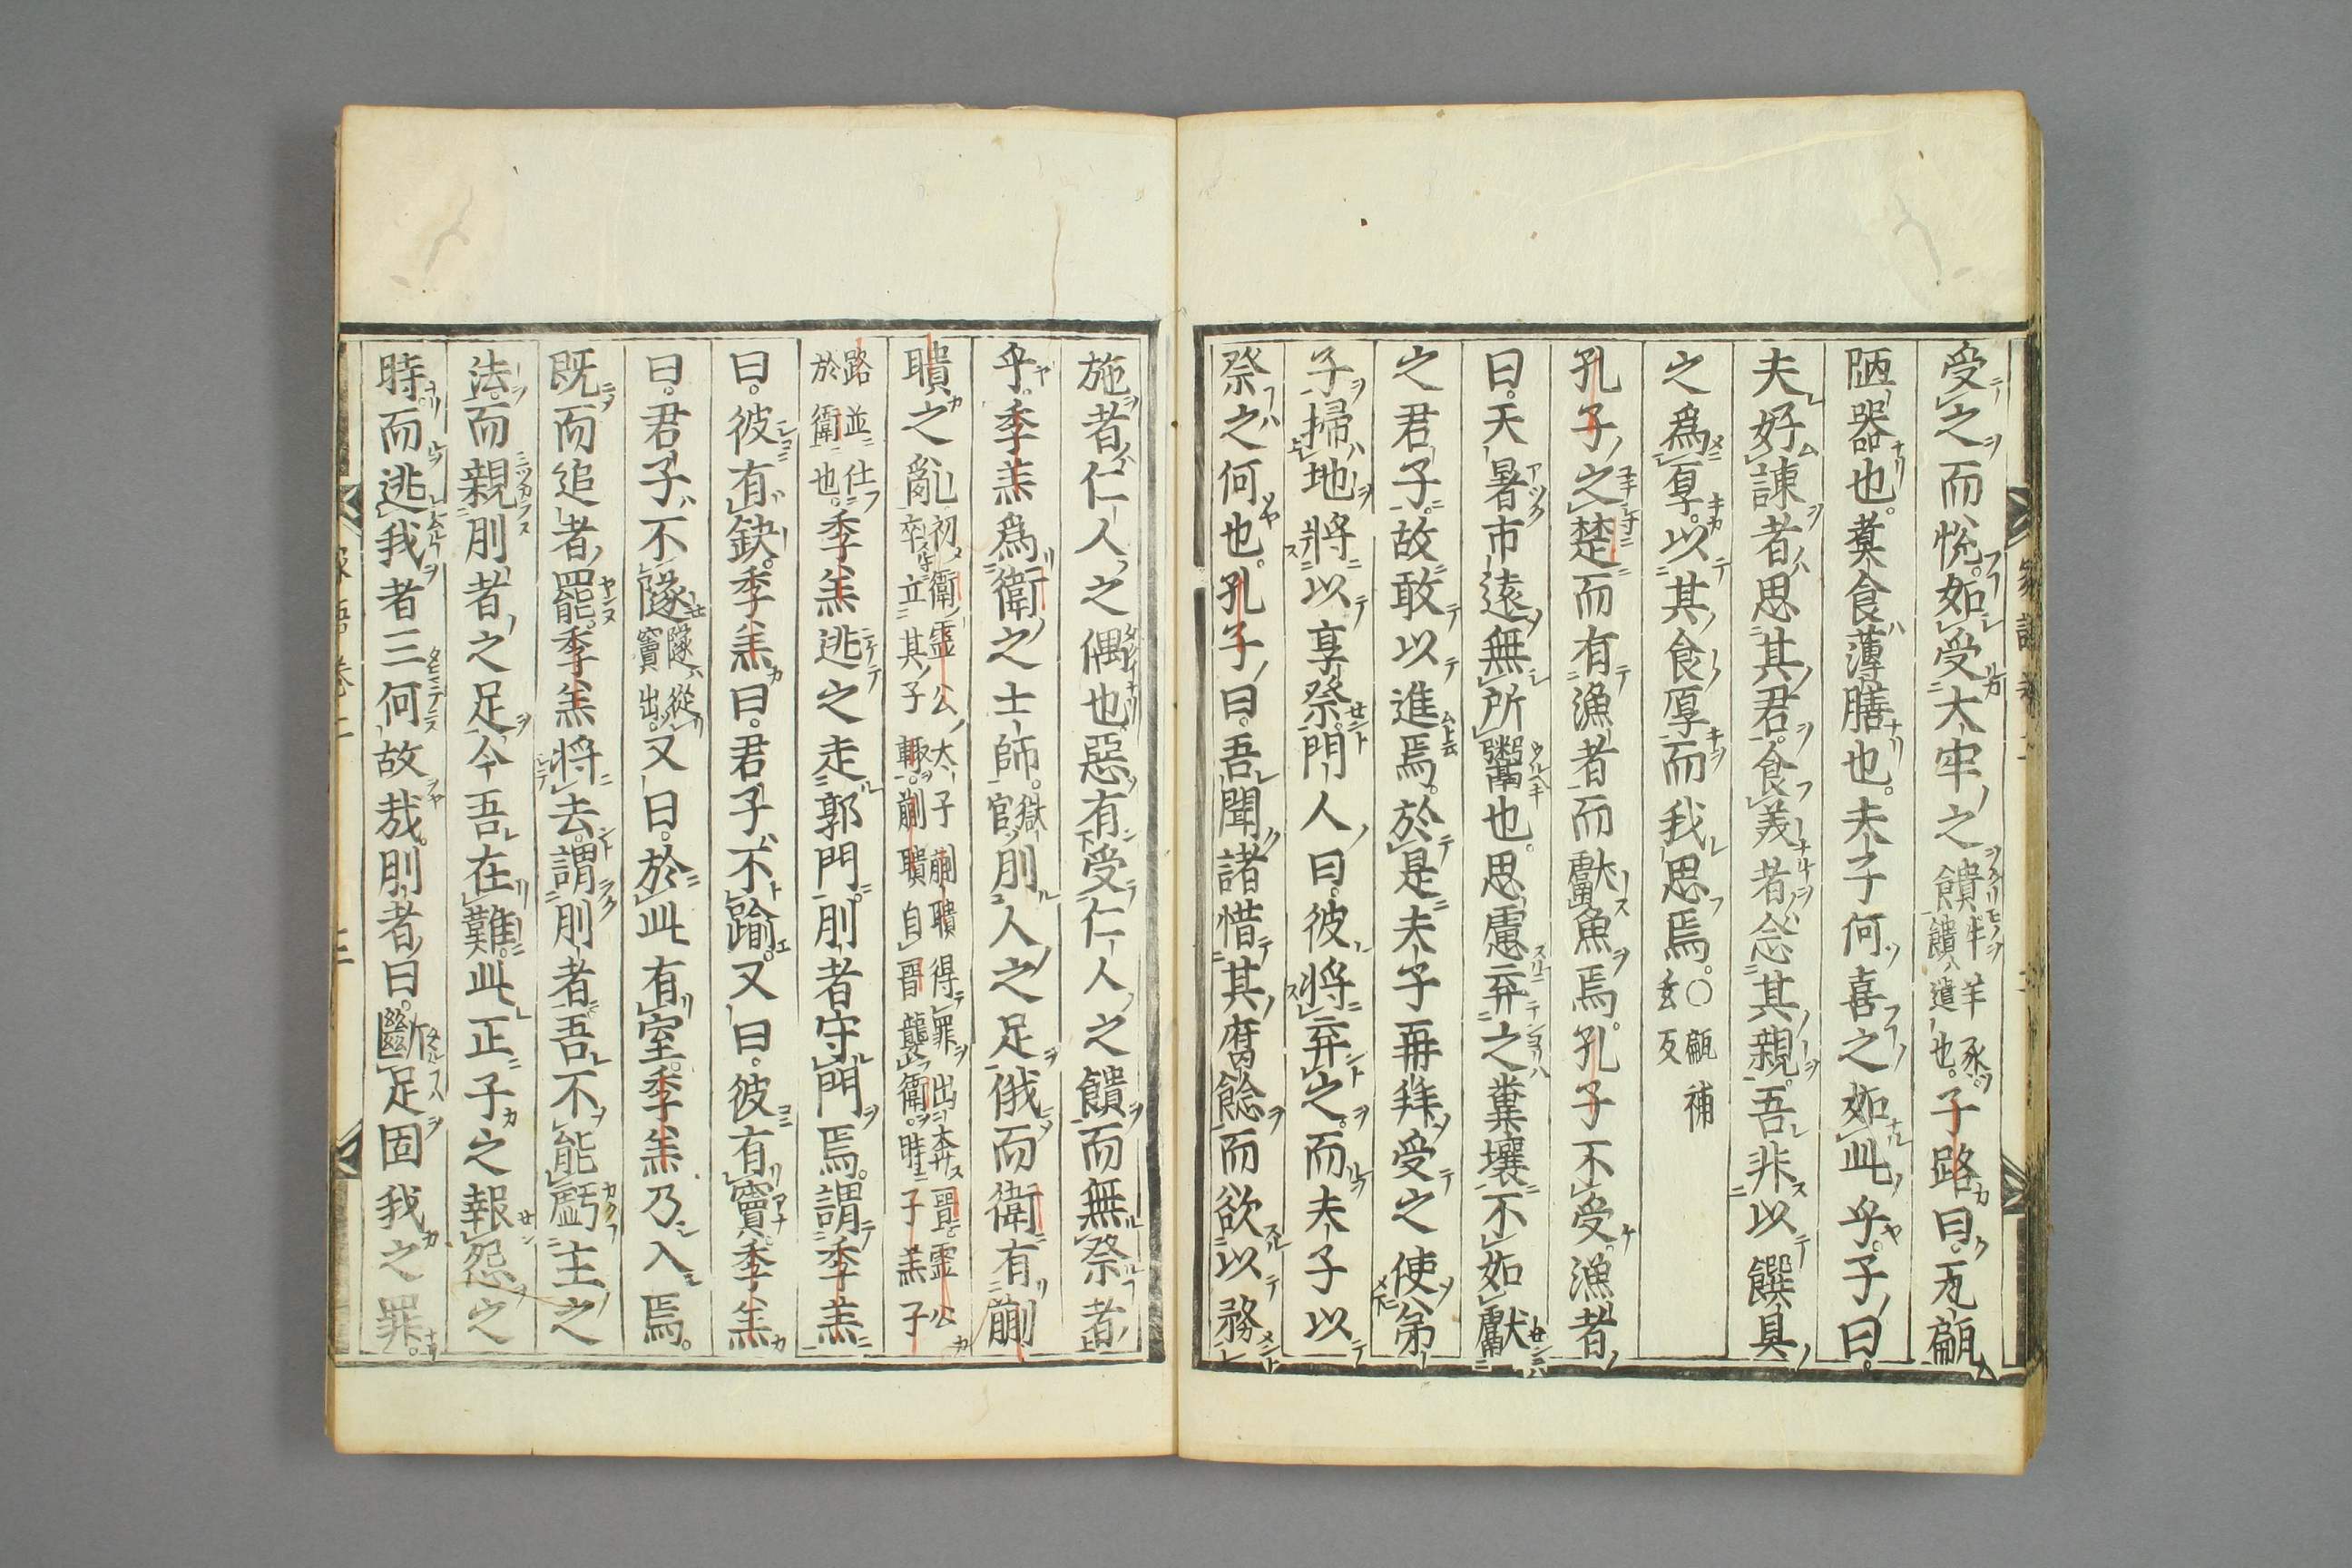 受之而悦如受大牢之饋牛羊豕饋遺也子路曰瓦甂
陋器也煑食薄膳也夫子何喜之如此乎子曰
夫好諌者思其君食美者念其親吾非以饌具
之爲厚以其食厚而我思焉○甂補玄反
孔子之楚而有漁者而獻魚焉孔子不受漁者
曰天暑市遠無所鬻也思慮弃之糞壤不如獻
之君子故敢以進焉於是夫子再拜受之使弟
子掃地將以享祭門人曰彼將弃之而夫子以
祭之何也孔子曰吾聞諸惜其腐餘而欲以務
施者仁人之偶也惡有受仁人之饋而無祭者
乎季羔爲衛之士師獄官刖人之足俄而衛有蒯
聵之亂初衛霊公太子蒯聵得罪出奔晋霊公卒立其子輙蒯聵自晋襲衛時子羔子
路並仕於衛也季羔逃之走郭門刖者守門焉謂季羔
曰彼有缺季羔曰君子不踰又曰彼有竇季羔
曰君子不隧隧從竇出又曰於此有室季羔乃入焉
既而追者罷季羔將去謂刖者吾不能虧主之
法而親刖者之足今吾在難此正子之報怨之
時而逃我者三何故㢤刖者曰斷足固我之罪